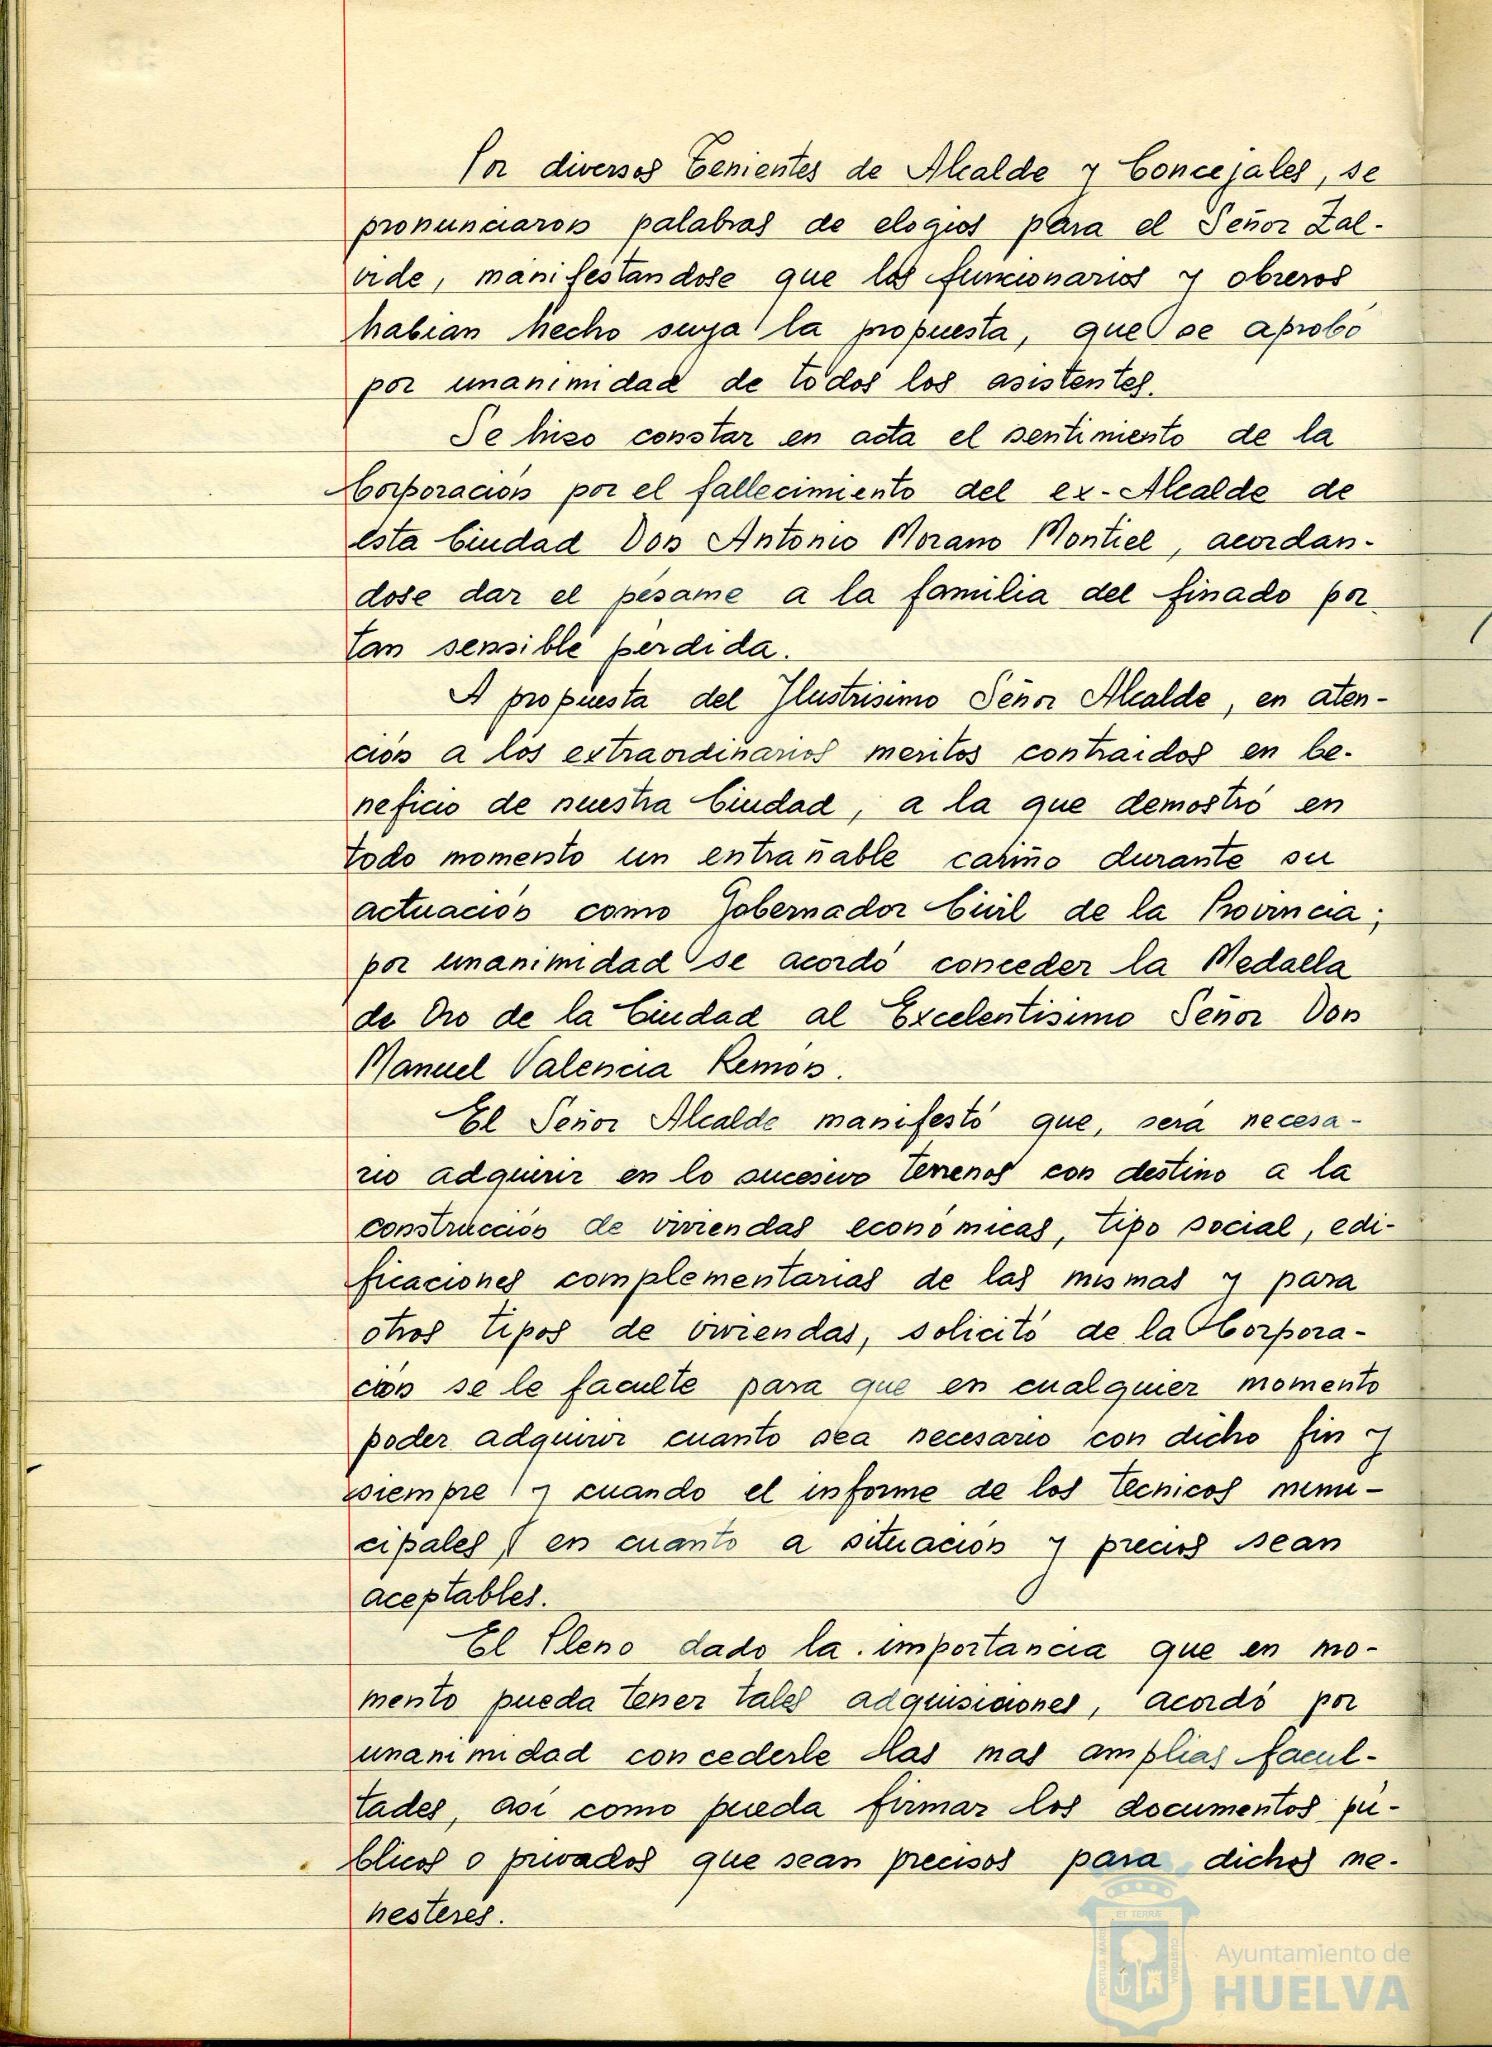 Por diversos Tenientes de Alcalde y Concejales, se
pronunciaron palabras de elogios para el Señor Zal-
vide, manifestandose que los funcionarios y obreros
habian hecho suya la propuesta, que se aprobó
por unanimidad de todos los asistentes.
Se hizo constar en acta el sentimiento de la
Corporación por el fallecimiento del ex-Alcalde de
esta Ciudad Don Antonio Morano Montiel, acordan-
dose dar el pésame a la familia del finado por
tan sensible pérdida.
A propuesta del Ilustrisimo Señor Alcalde, en aten-
ción a los extraordinarios meritos contraidos en be-
neficio de nuestra Ciudad, a la que demostró en
todo momento un entrañable cariño durante su
actuación como Gobernador Civil de la Provincia;
por unanimidad se acordó conceder la Medalla
de Oro de la Ciudad al Excelentisimo Señor Don
Manuel Valencia Remón.
El Señor Alcalde manifestó que, será necesa-
rio adquirir en lo sucesivo terrenos con destino a la
construcción de viviendas económicas, tipo social, edi-
ficaciones complementarias de las mismas y para
otros tipos de viviendas, solicitó de la Corpora-
ción se le faculte para que en cualquier momento
poder adquirir cuanto sea necesario con dicho fin y
siempre y cuando el informe de los tecnicos muni-
cipales, en cuanto a situación y precios sean
aceptables.
El Pleno dado la importancia que en mo-
mento pueda tener tales adquisiciones, acordó por
unanimidad concederle las mas amplias facul-
tades, asi como pueda firmar los documentos pú-
blicos o privados que sean precisos para dichos me-
nesteres.
PORTUS MARIS ET TERRÆ CUSTODIA
Ayuntamiento de
HUELVA